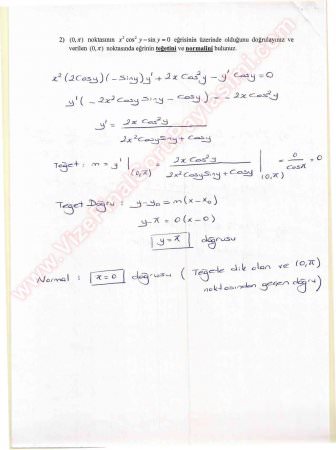 2) (0,π) noktasının x² cos² y – sin y = 0 eğrisinin üzerinde olduğunu doğrulayınız ve
verilen (0,π) noktasında eğrinin teğetini ve normalini bulunuz.
x²(2Cosy)(-Siny)y' + 2x Cos²y - y' Cosy = 0
y'(-2x²CosySiny - Cosy) = -2x Cos²y
y' = 2x Cos²y / 2x²CosySiny + Cosy
Teğet: m = y' |(0,π) = 2x Cos²y / 2x²CosySiny + Cosy |(0,π) = 0/Cosπ = 0
Teğet Doğru: y-y₀ = m(x-x₀)
y-π = 0(x-0)
y=π doğrusu
Normal: x=0 doğrusu (Teğete dik olan ve (0,π)
noktasından geçen doğru)